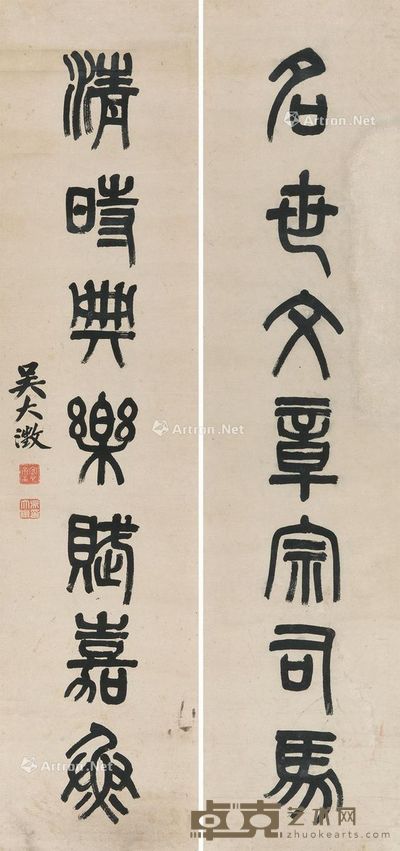 名世文章宗司馬
清時典樂賦嘉魚
吴大澂
Artron.Net
Artron.Net
Artron.Net
Artron.Net
卓克艺术网
zhuokearts.com